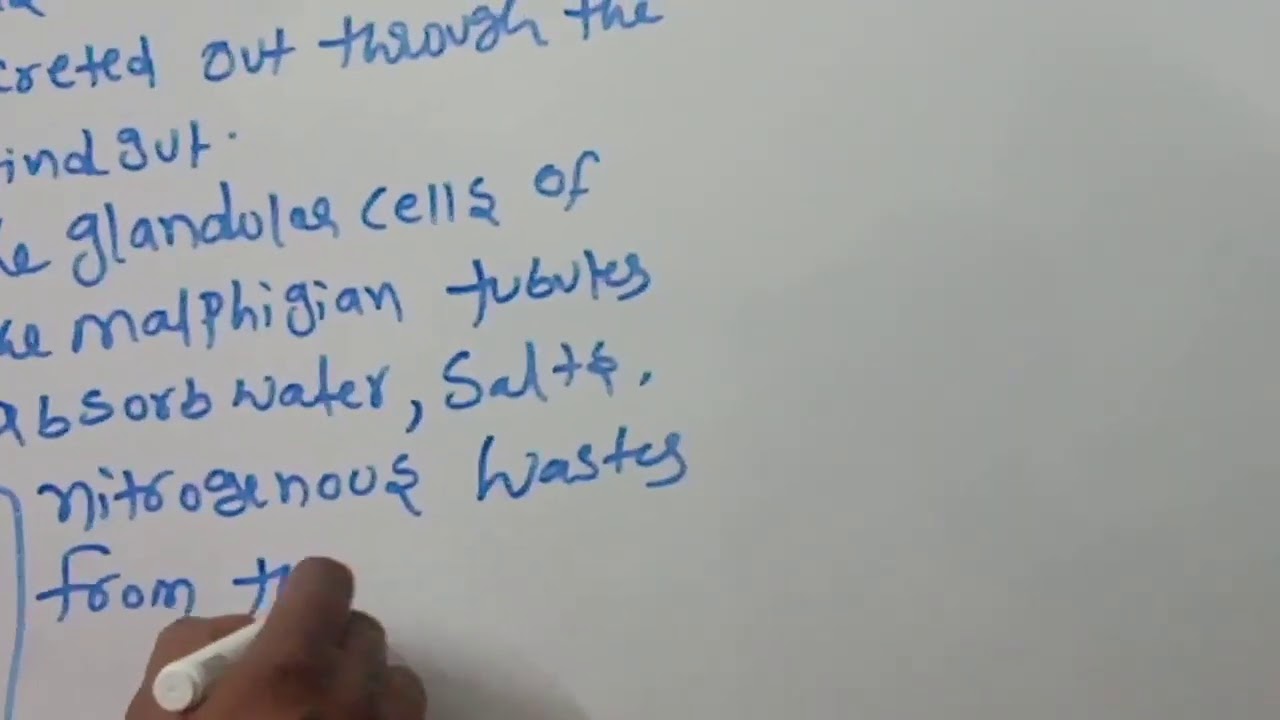 creted out through the
indgut.
glandular cells of
malphigian tubules
absorb water, Salts,
nitrogenous wastes
from